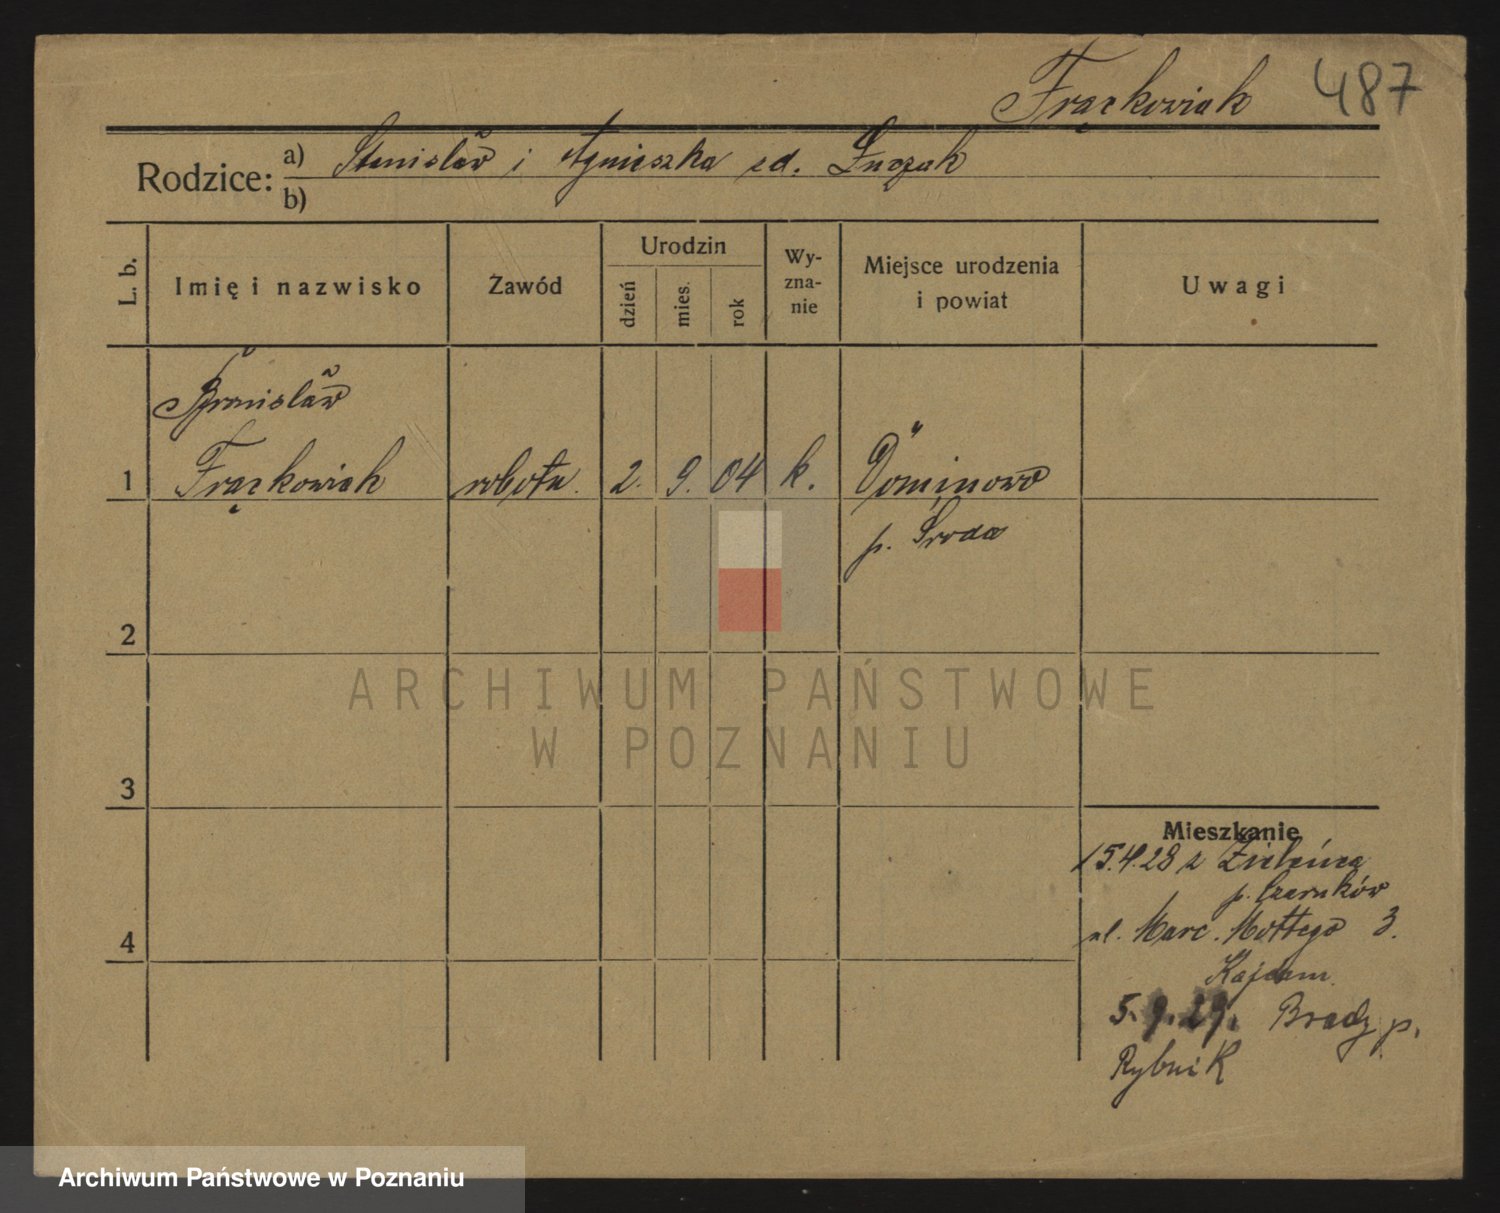 Frąckowiak 487
Rodzice: a) Stanisław i Agnieszka zd. Łuczak
b)
L. b. Imię i nazwisko Zawód Urodzin dzień mies. rok Wy-zna-nie Miejsce urodzenia i powiat Uwagi
Bronisław
1 Frąckowiak robotn. 2. 9. 04 k. Dominowo
p. Środa
2
ARCHIWUM PAŃSTWOWE
W POZNANIU
3
Mieszkanie
15.4.28 z Zieleńca
p. Czarnków
4 ul. Marc. Mottego 3.
5.9.29. Brady p.
Rybnik
Archiwum Państwowe w Poznaniu